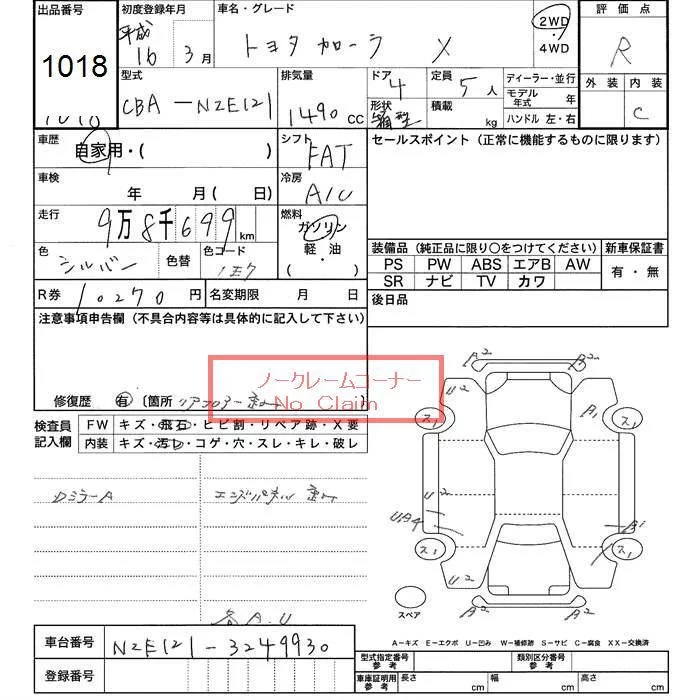 出品番号
1018
1010
初度登録年月
平成
16 3月
車名・グレード
トヨタ カローラ X
2WD
・
4WD
評価点
R
外装 内装
C
型式
CBA-NZE121
排気量
1490 cc
ドア
4
形状
箱型
定員
5人
積載
kg
ディーラー・並行
モデル年式 年
ハンドル 左・右
車歴
自家用・( )
シフト
FAT
車検
年 月( 日)
冷房
A/C
走行
9万8千699km
燃料
ガソリン
軽・油
( ・ )
色
シルバー
色替
色コード
1E7
R券 10270円
名変期限 月 日
セールスポイント(正常に機能するものに限ります)
装備品(純正品に限り○をつけてください)
新車保証書
PS PW ABS エアB AW
SR ナビ TV カワ
有・無
後日品
注意事項申告欄(不具合内容等は具体的に記入して下さい)
ノークレームコーナー
No Claim
修復歴 有 〔箇所
検査員
記入欄
FW キズ・飛石・ヒビ割・リペア跡・X要
内装 キズ・汚レ・コゲ・穴・スレ・キレ・破レ
DミラーA
各A.U
A2
A2
U2
ス1
A1
ス1
U2
UA4
B1
ス1
ス1
U2
スペア
A2
A2
A-キズ E-エクボ U-凹み W-補修跡 S-サビ C-腐食 XX-交換済
車台番号 NZE121-3249930
登録番号
型式指定番号
参考
類別区分番号
参考
車庫証明用
参考
長さ cm 幅 cm 高さ cm